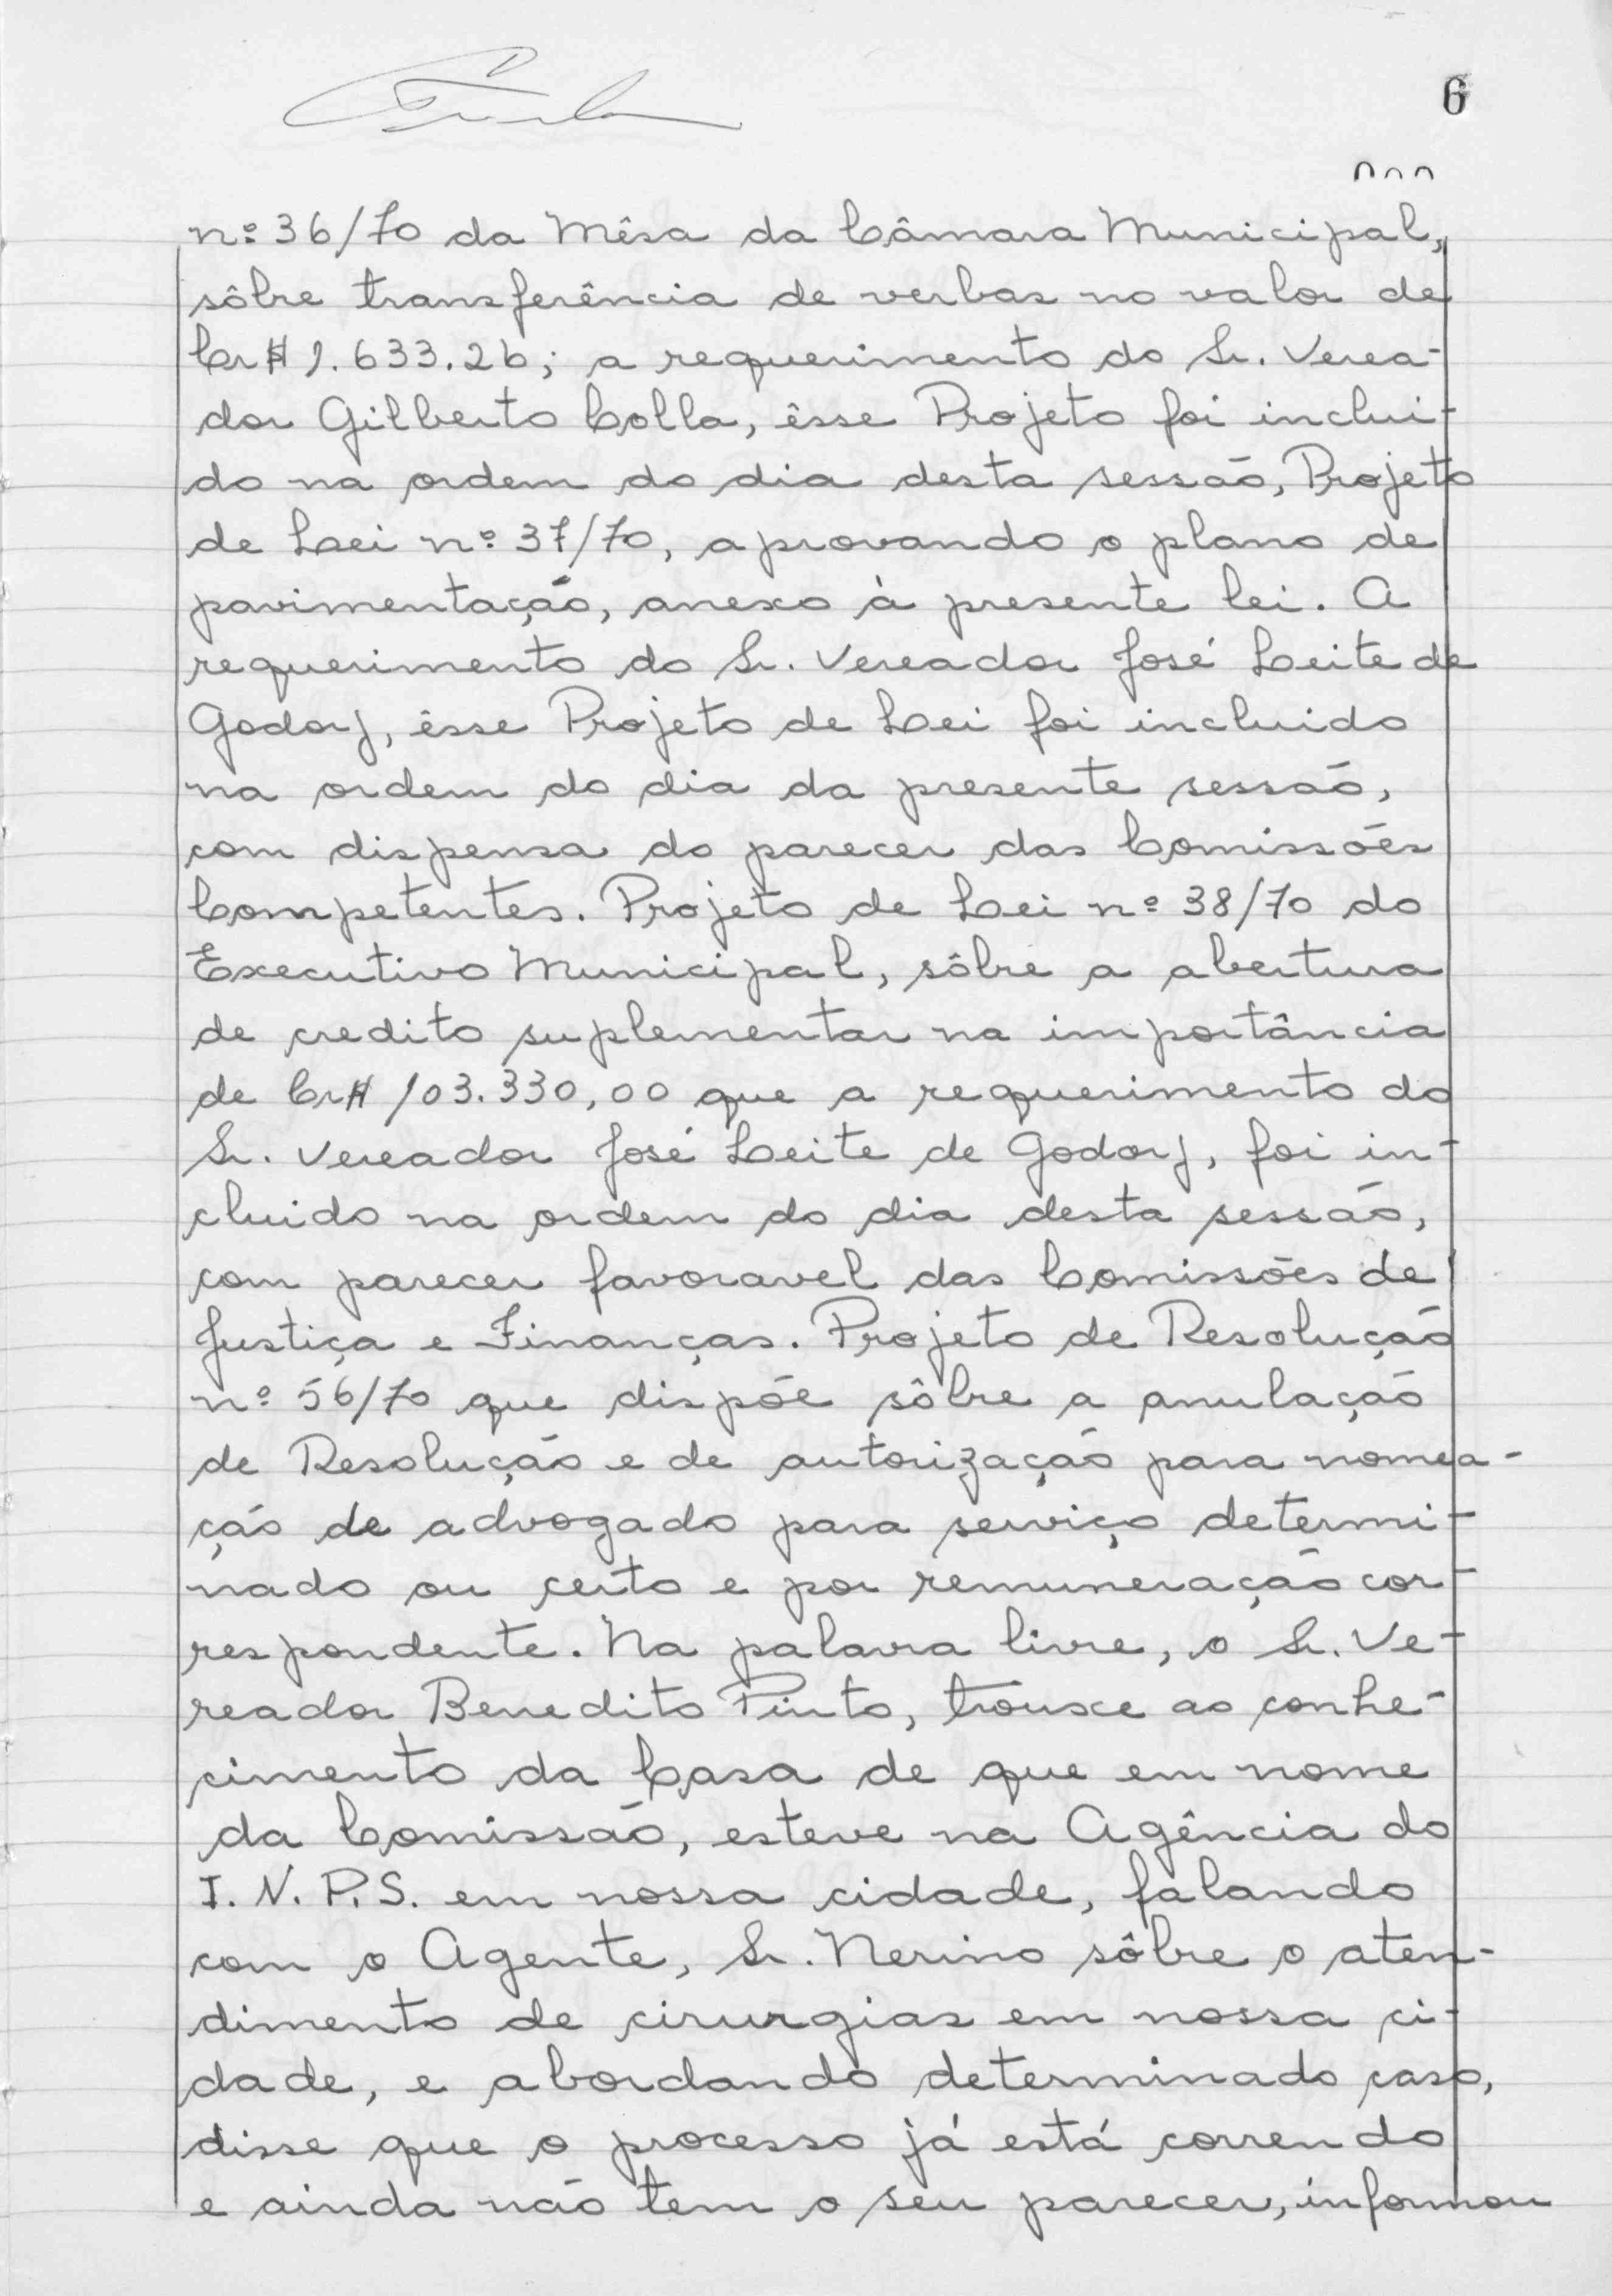 6
nº 36/70 da Mêsa da Câmara Municipal,
sôbre transferência de verbas no valor de
Cr$ 1.633.26; a requerimento do Sr. Verea-
dor Gilberto Colla, êsse Projeto foi inclui-
do na ordem do dia desta sessão, Projeto
de Lei nº 37/70, aprovando o plano de
pavimentação, anexo à presente lei. A
requerimento do Sr. Vereador José Leite de
Godoy, êsse Projeto de Lei foi incluido
na ordem do dia da presente sessão,
com dispensa do parecer das Comissões
Competentes. Projeto de Lei nº 38/70 do
Executivo Municipal, sôbre a abertura
de credito suplementar na importância
de Cr$ 103.330,00 que a requerimento do
Sr. Vereador José Leite de Godoy, foi in-
cluido na ordem do dia desta sessão,
com parecer favoravel das Comissões de
Justiça e Finanças. Projeto de Resolução
nº 56/70 que dispõe sôbre a anulação
de Resolução e de autorização para nomea-
ção de advogado para serviço determi-
nado ou certo e por remuneração cor-
respondente. Na palavra livre, o Sr. Ve-
reador Benedito Pinto, trouxe ao conhe-
cimento da Casa de que em nome
da Comissão, esteve na Agência do
I.N.P.S. em nossa cidade, falando
com o Agente, Sr. Nerino sôbre o aten-
dimento de cirurgias em nossa ci-
dade, e abordando determinado caso,
disse que o processo já está correndo
e ainda não tem o seu parecer, informou